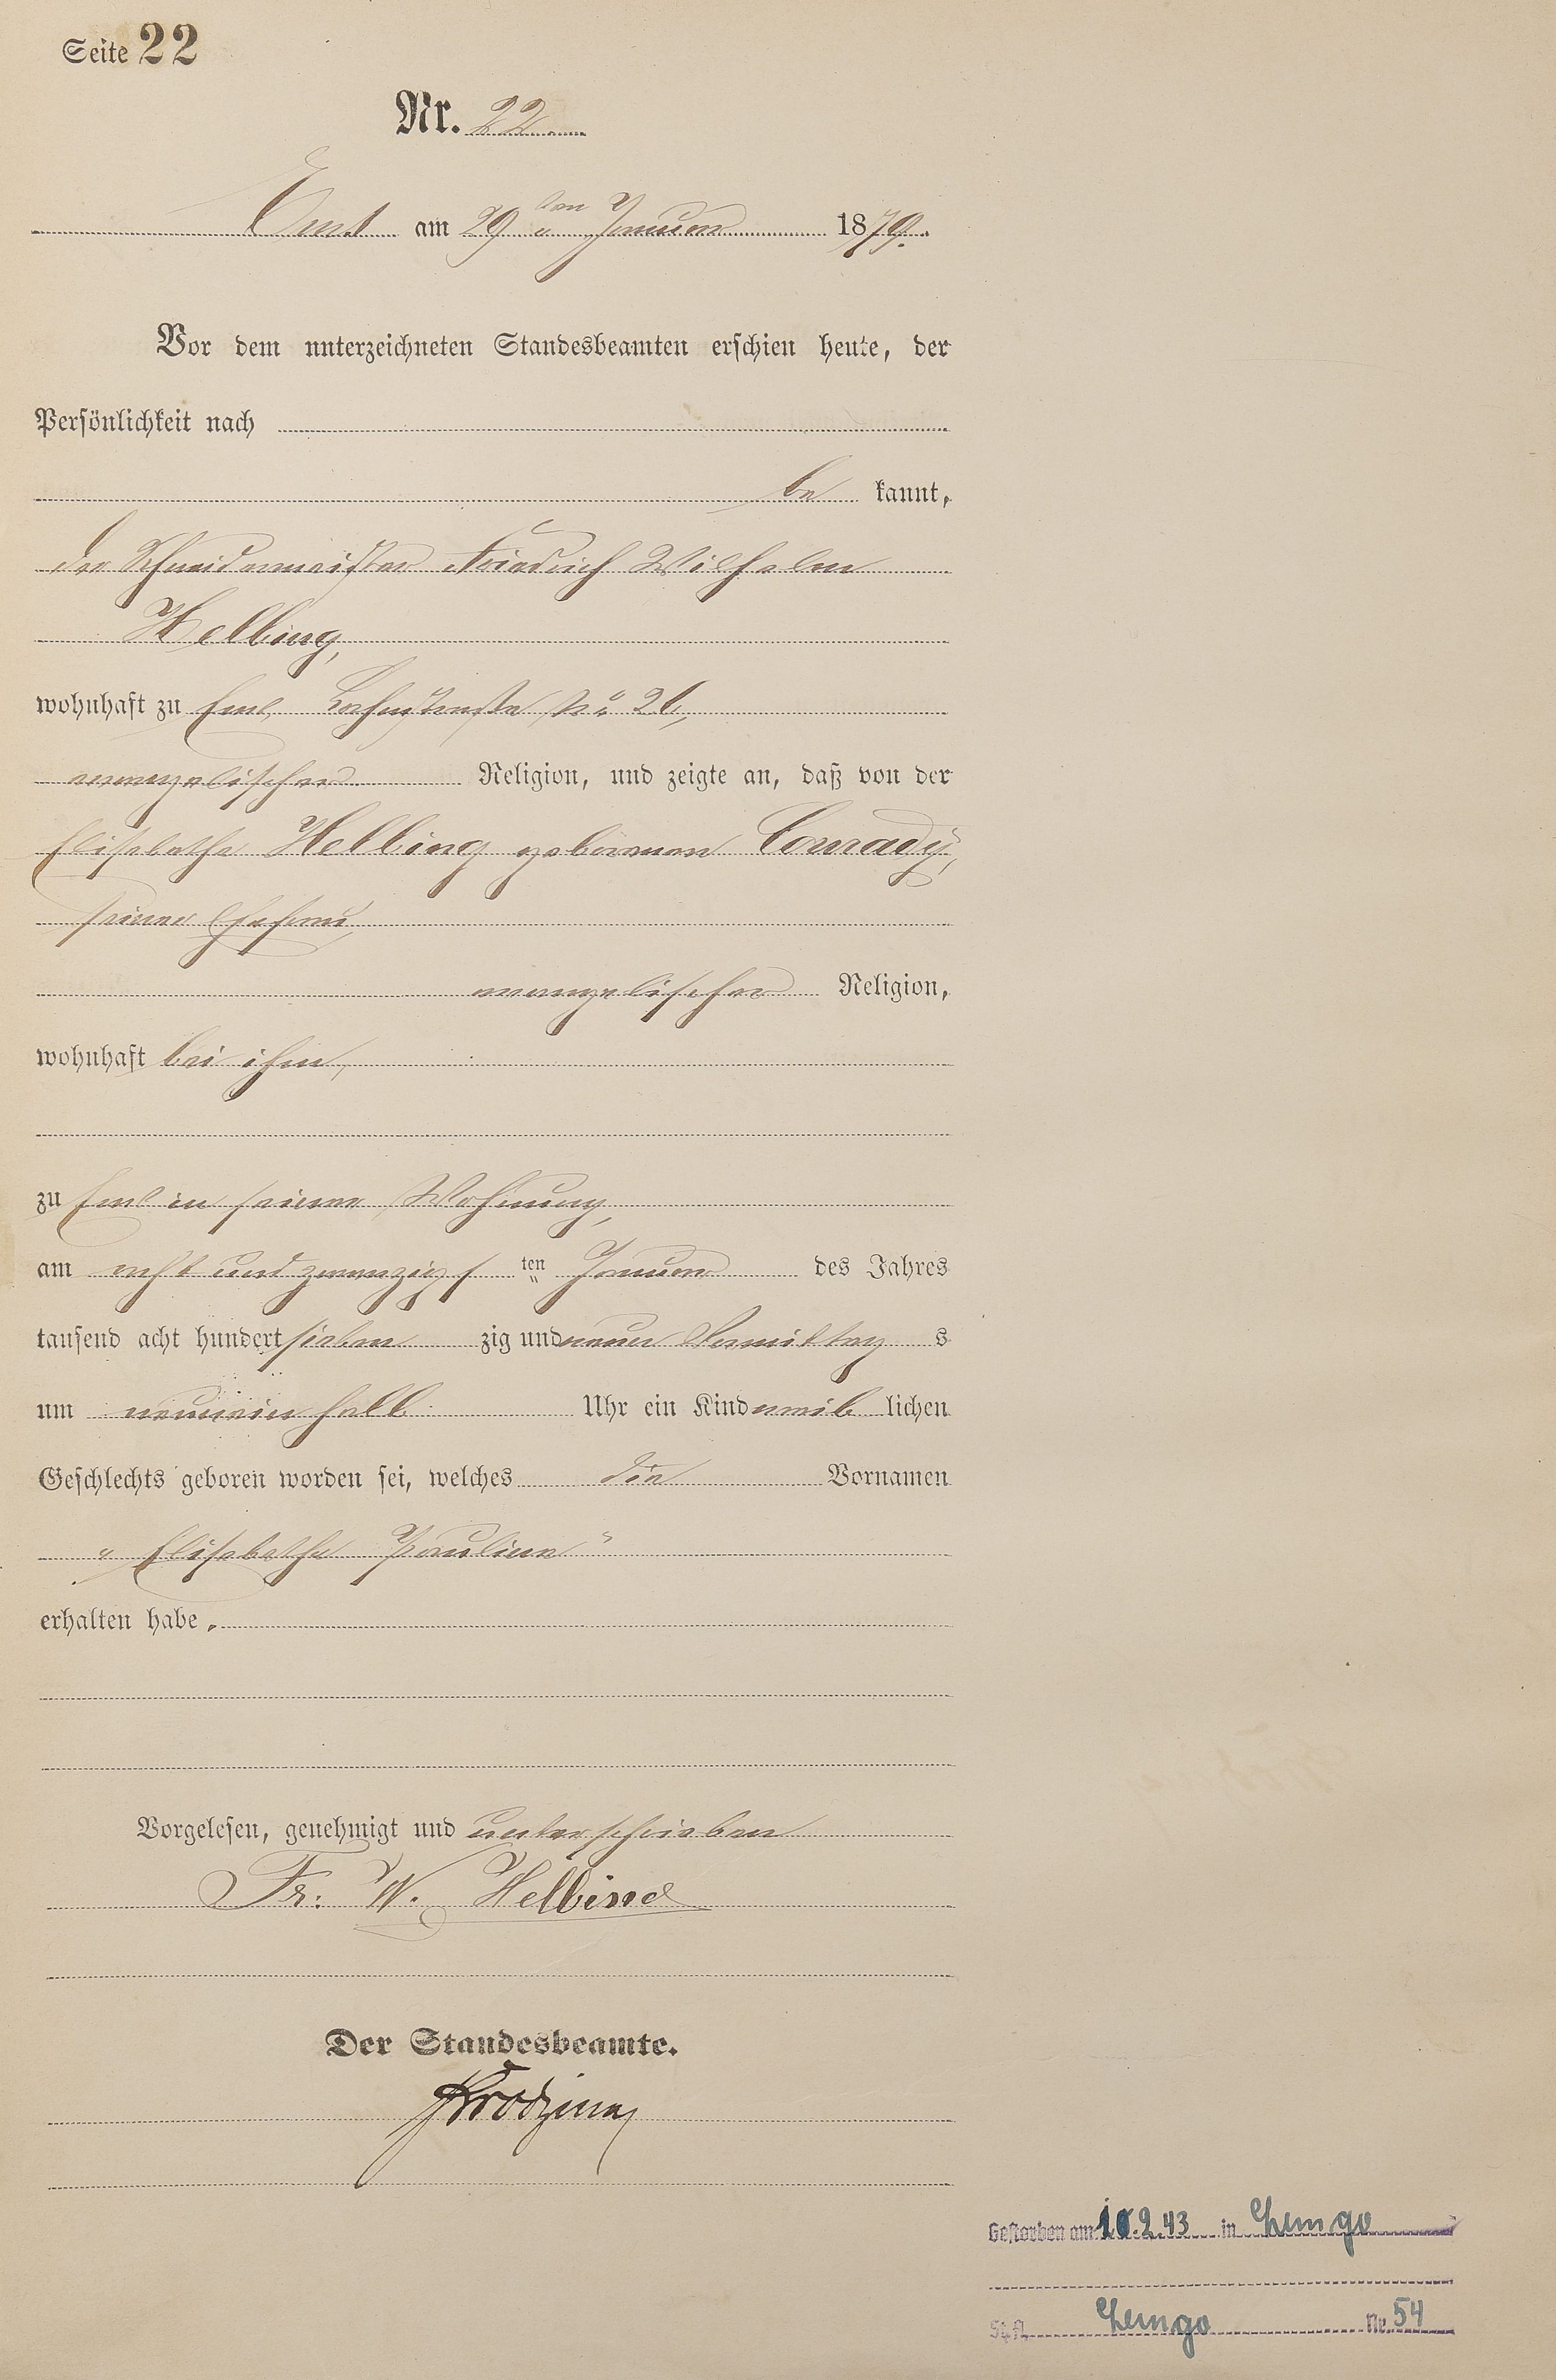 Seite 22
Nr. 22.
Ems am 29ten Januar 1879.
Vor dem unterzeichneten Standesbeamten erschien heute, der
Persönlichkeit nach
be kannt,
der Schneidermeister Friedrich Wilhelm
Helbing,
wohnhaft zu Ems, No 26,
evangelischer Religion, und zeigte an, daß von der
Elisabethe Helbing geborenen Conrady,
seiner Ehefrau,
evangelischer Religion,
wohnhaft bei ihm,
zu Ems in seiner Wohnung,
am acht und zwanzigs ten Januar des Jahres
tausend acht hundert sieben zig und neun Vormittag s
um neun ein halb Uhr ein Kind weib lichen
Geschlechts geboren worden sei, welches die Vornamen
„Elisabethe Pauline“
erhalten habe.
Vorgelesen, genehmigt und unterschrieben
Fr: W. Helbing
Der Standesbeamte.
Gestorben am .2.43 in Lemgo
St.A. Lemgo Nr. 54